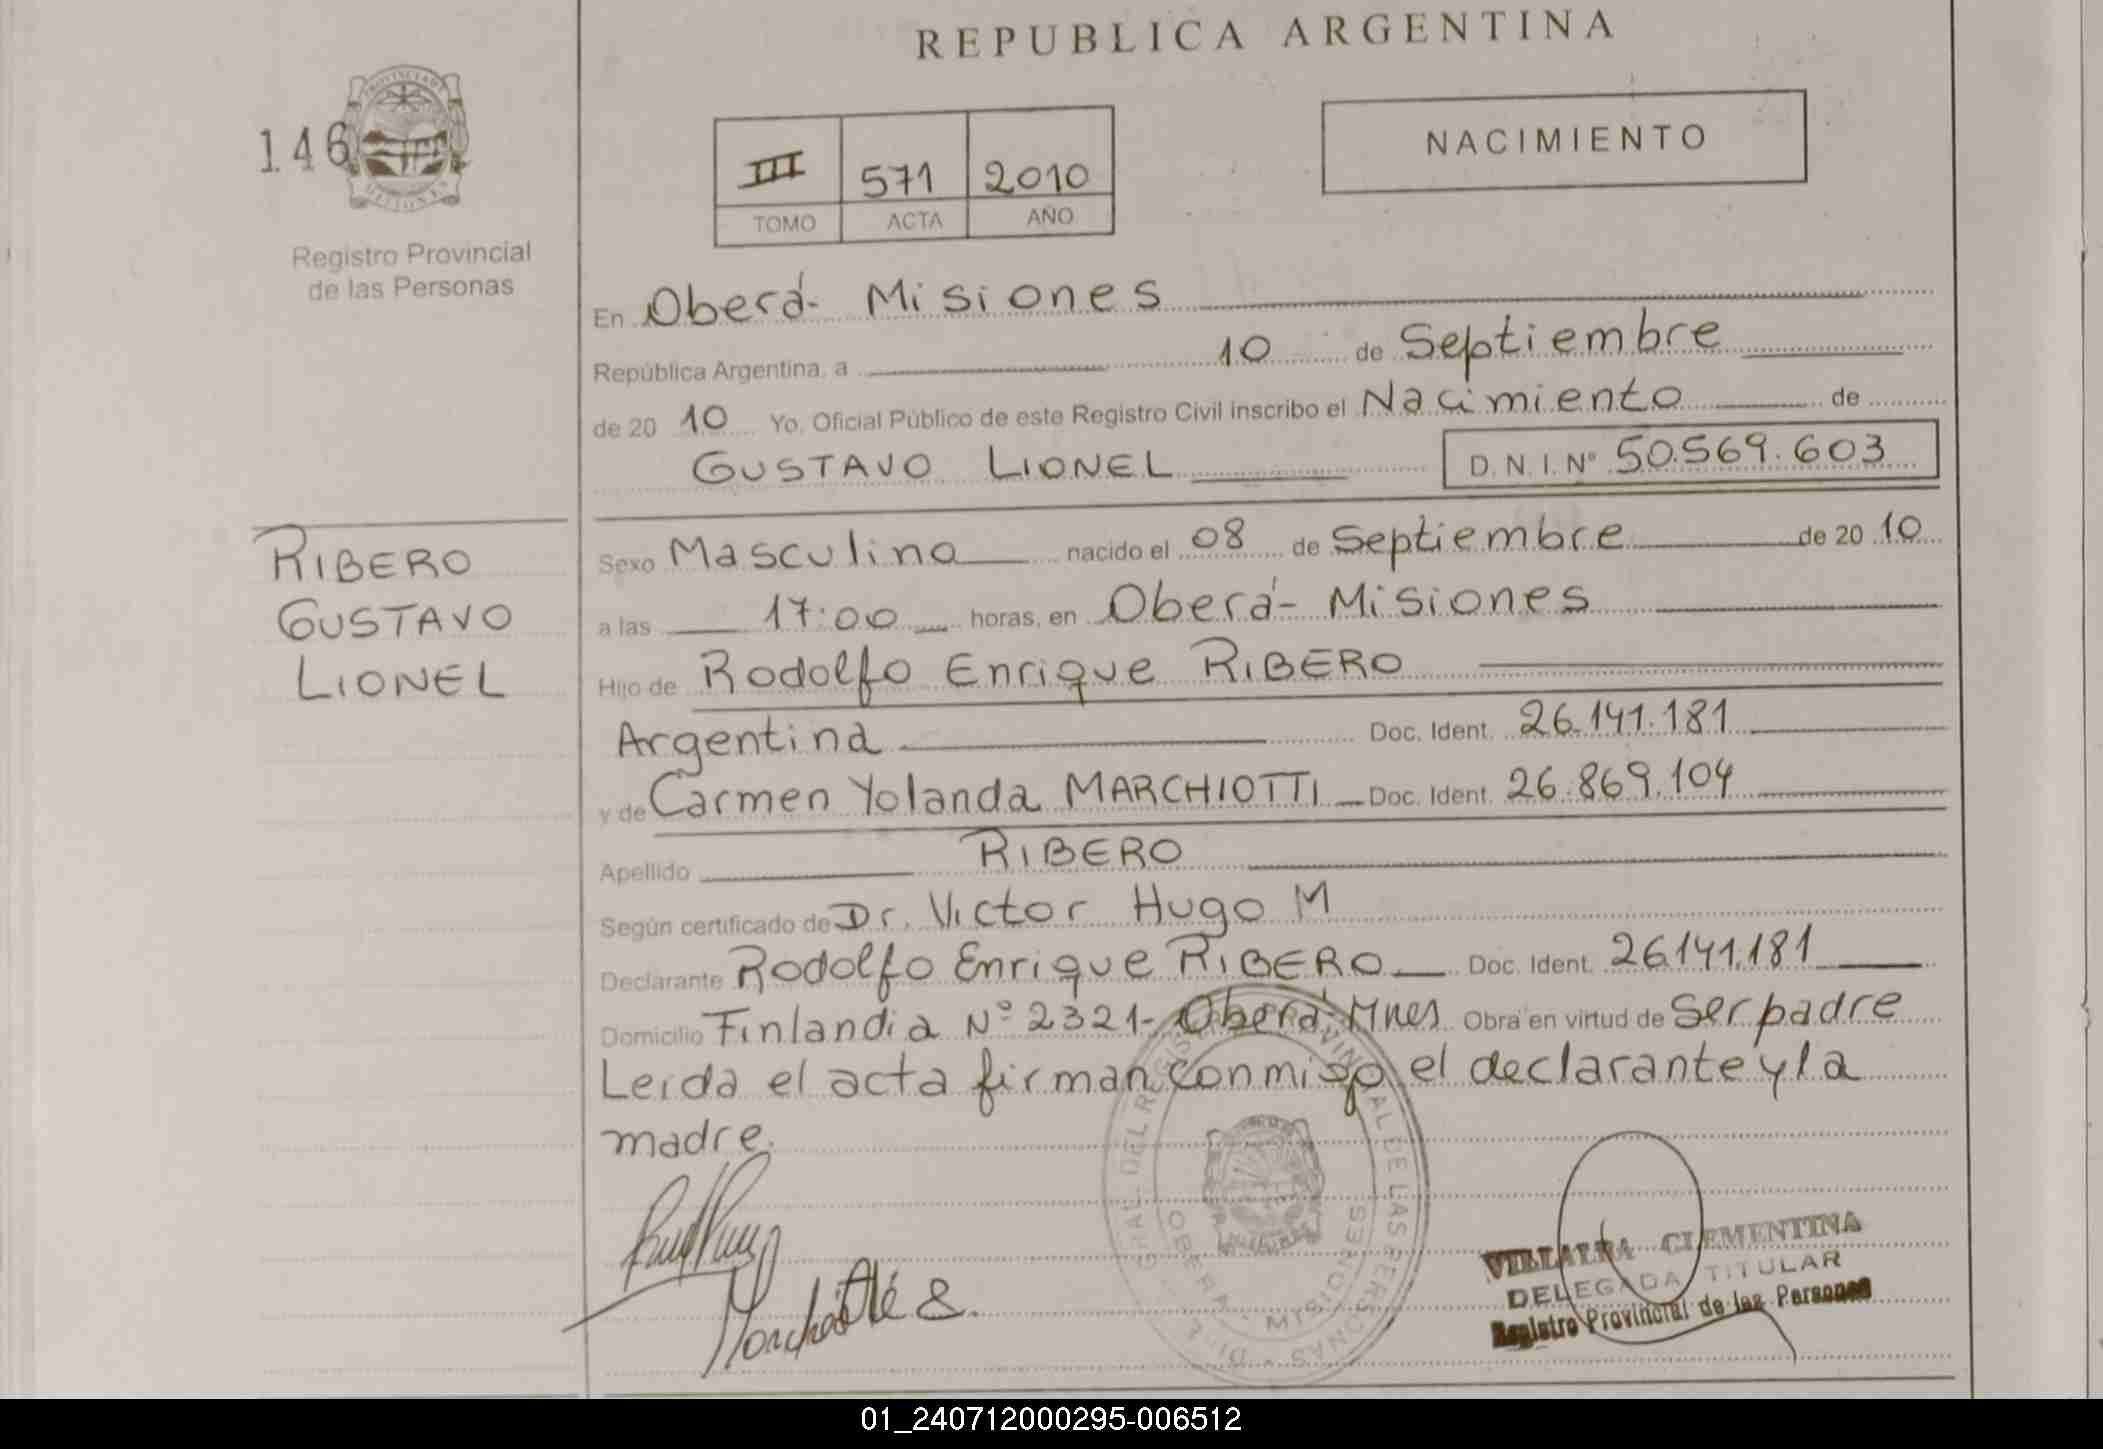 REPUBLICA ARGENTINA
146
PROVINCIA DE
MISIONES
Registro Provincial
de las Personas
NACIMIENTO
III 571 2010
TOMO ACTA AÑO
En Oberá - Misiones
República Argentina, a 10 de Septiembre
de 20 10 Yo, Oficial Público de este Registro Civil inscribo el Nacimiento de
GUSTAVO LIONEL D.N.I.Nº 50.569.603
RIBERO
GUSTAVO
LIONEL
Sexo Masculino nacido el 08 de Septiembre de 20 10
a las 17:00 horas, en Oberá - Misiones
Hijo de Rodolfo Enrique RIBERO
Argentina Doc. Ident. 26.141.181
y de Carmen Yolanda MARCHIOTTI Doc. Ident. 26.869.104
Apellido RIBERO
Según certificado de Dr. Victor Hugo M
Declarante Rodolfo Enrique RIBERO Doc. Ident. 26.141.181
Domicilio Finlandia Nº 2321- Oberá, Mnes Obra en virtud de Ser padre
Leída el acta firman conmigo el declarante y la
madre.
DIR. GRAL. DEL REGISTRO PROVINCIAL DE LAS PERSONAS
OBERA - MISIONES
VILLALBA CLEMENTINA
DELEGADA TITULAR
Registro Provincial de las Personas
01_240712000295-006512